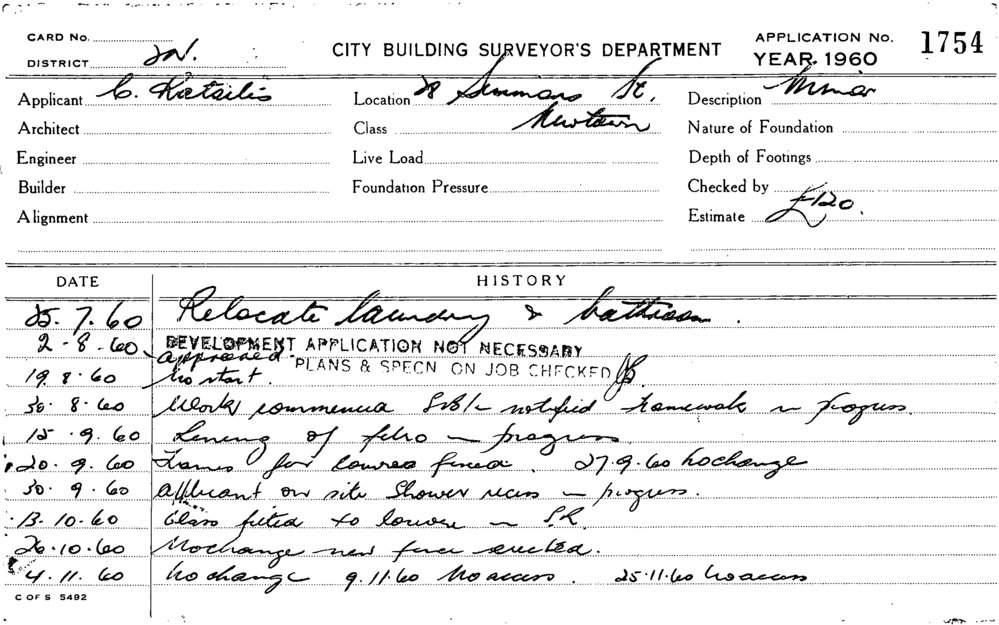 CARD No.
DISTRICT
CITY BUILDING SURVEYOR'S DEPARTMENT
APPLICATION No. 1754
YEAR 1960
Applicant C. Katsilis
Location 28 Simmons St.
Description Minor
Architect
Class Newtown
Nature of Foundation
Engineer
Live Load
Depth of Footings
Builder
Foundation Pressure
Checked by
Alignment
Estimate £120.
DATE HISTORY
25.7.60 Relocate laundry & bathroom.
2-8-60 DEVELOPMENT APPLICATION NOT NECESSARY
approved. PLANS & SPECN ON JOB CHECKED
19.8.60 No start.
30.8.60 Work commenced notified framework in progress.
15.9.60 Lining of fibro in progress
20.9.60 Frames for louvres fixed. 27.9.60 No change
30.9.60 Applicant on site Shower recess in progress.
13.10.60 Glass fitted to louvre in S.R.
26.10.60 No change new fence erected.
4.11.60 No change 9.11.60 No access. 25.11.60 No access
C OF S 5492